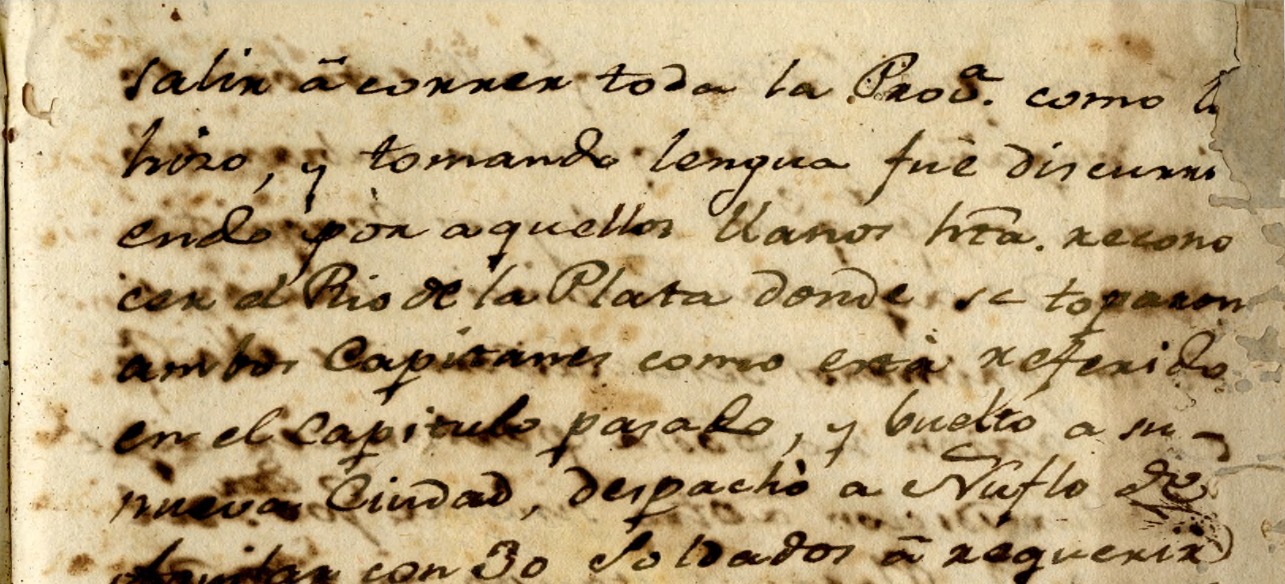 salir â correr toda la Prov.ª como lo
hizo, y tomando lengua fuê discurri
endo por aquellos llanos hta. recono
cer el Rio de la Plata donde se toparon
ambos Capitanes como està referido
en el Capitulo pasado, y buelto a su
nueva Ciudad, despachò a Nuflo de
con 30 Soldados â requerir